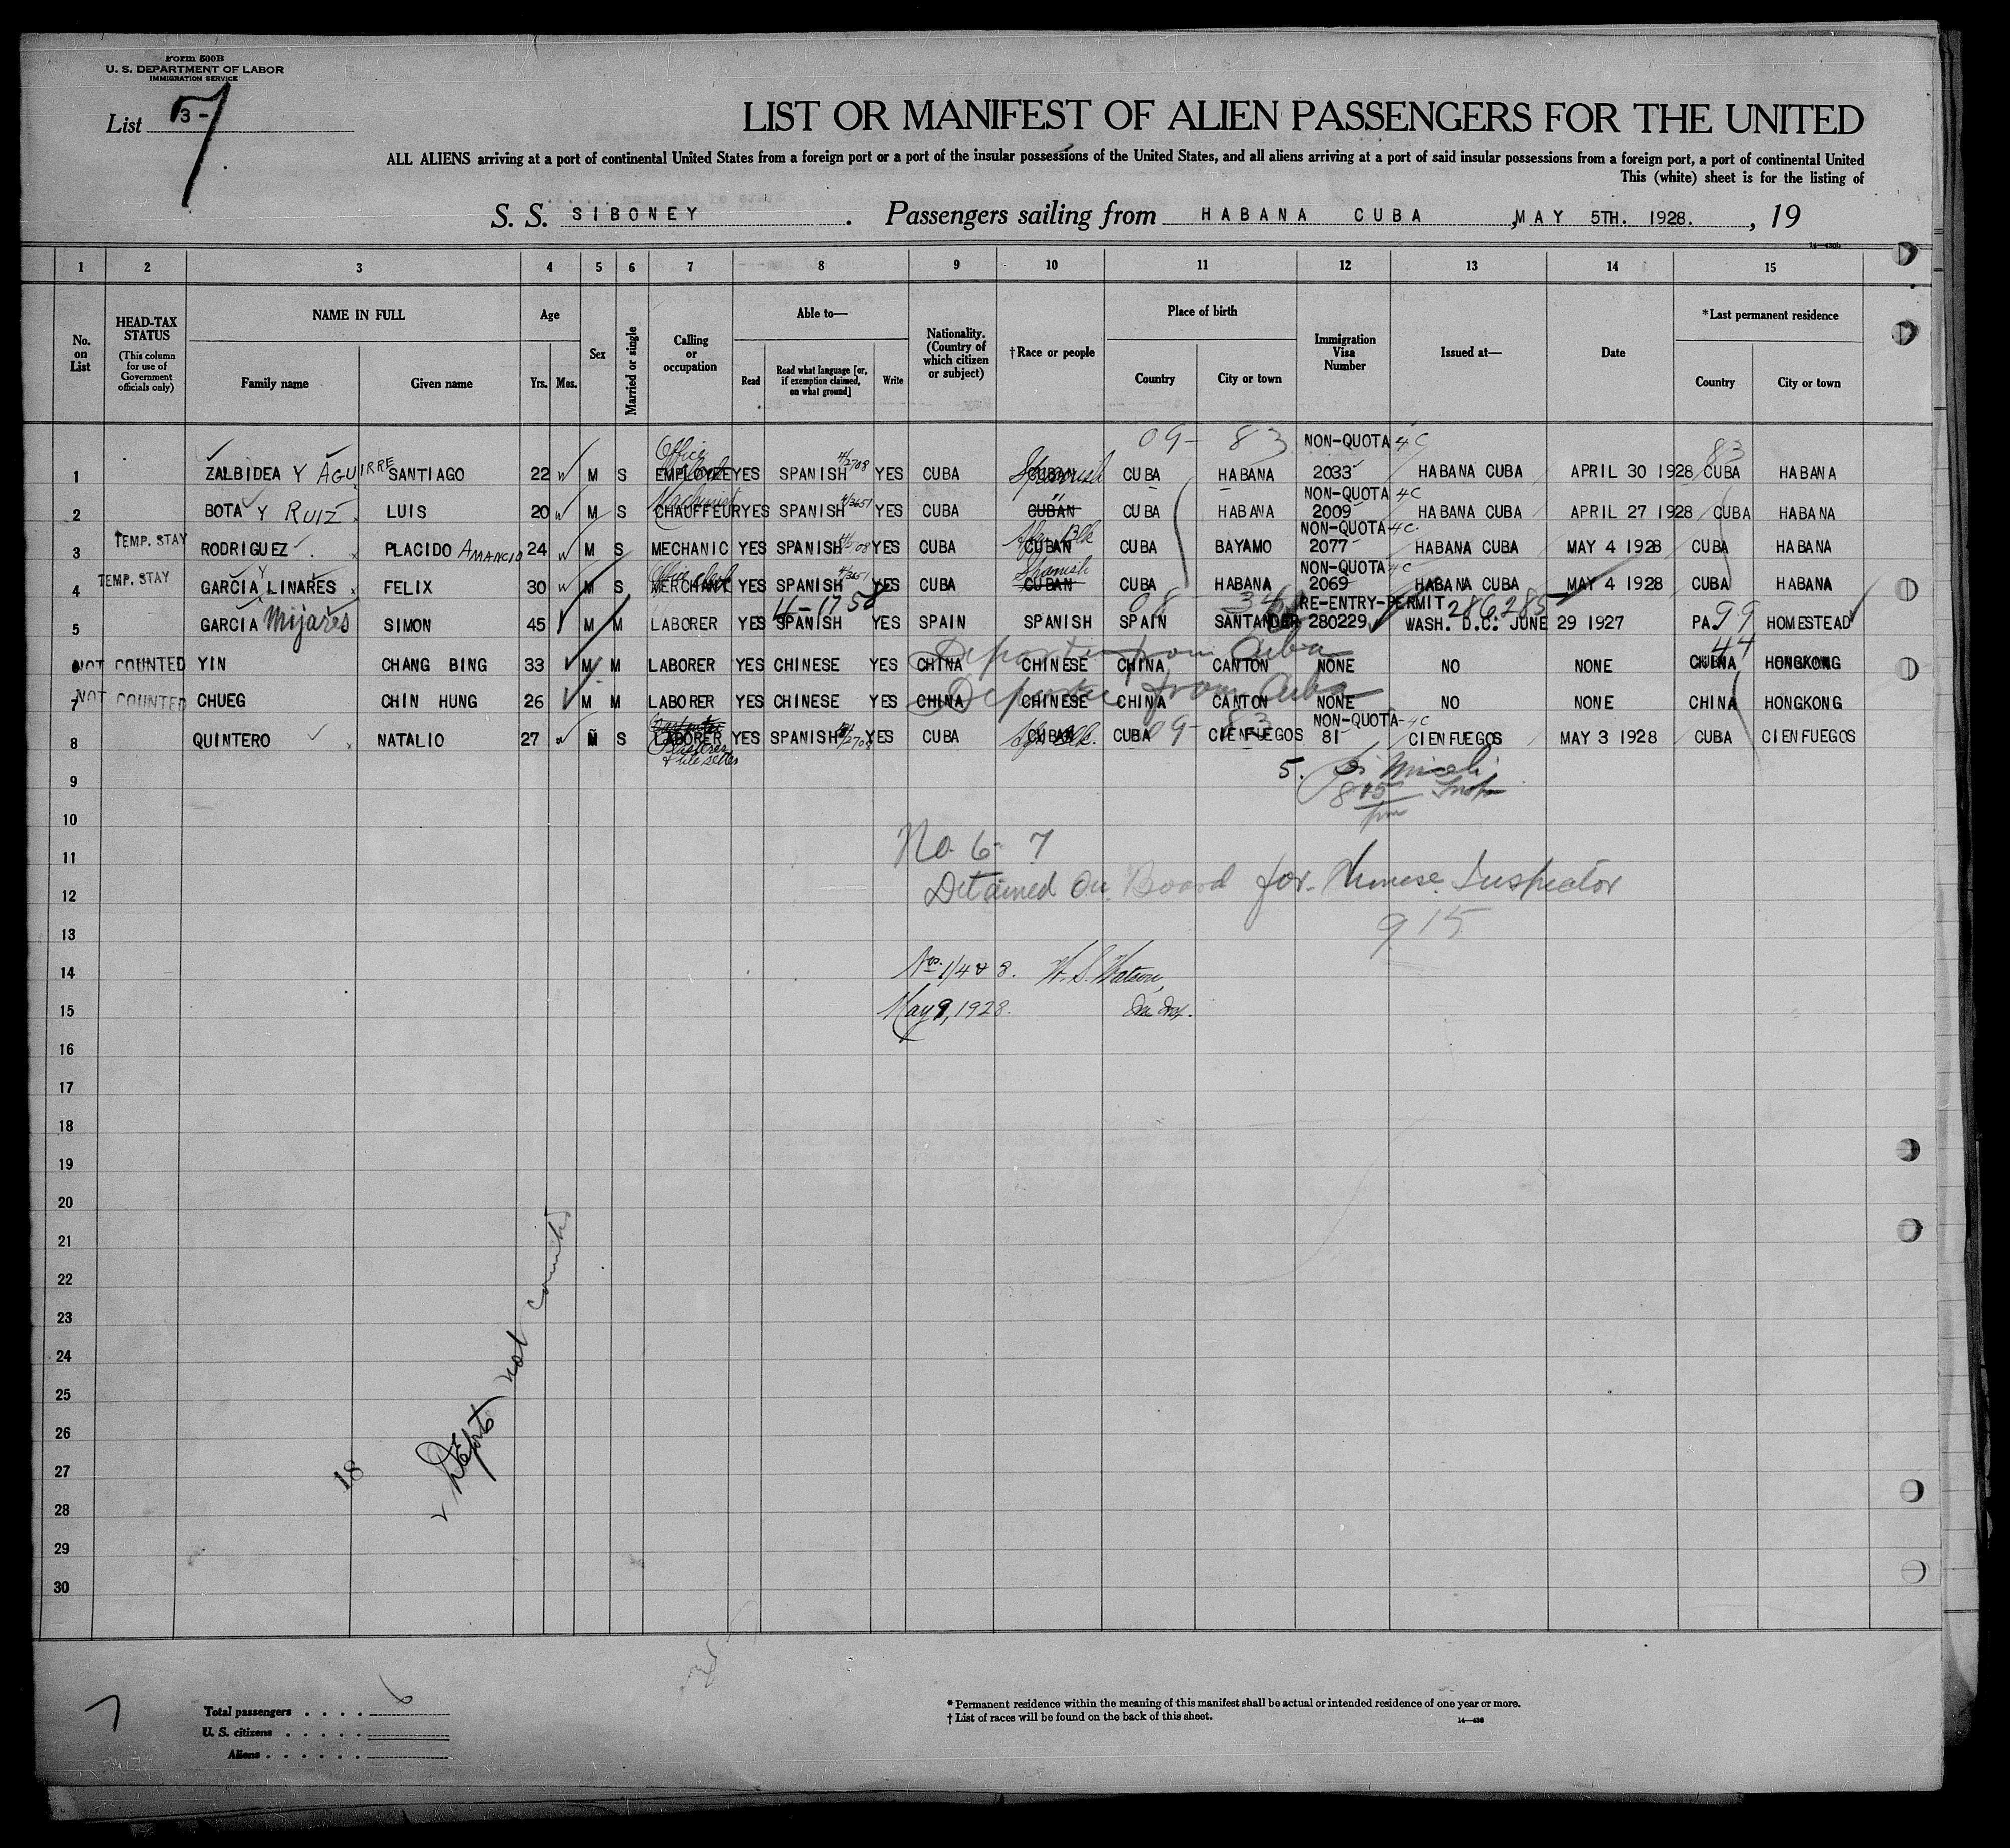 Form 500B
U. S. DEPARTMENT OF LABOR
IMMIGRATION SERVICE
List 3- 7
LIST OR MANIFEST OF ALIEN PASSENGERS FOR THE UNITED
ALL ALIENS arriving at a port of continental United States from a foreign port or a port of the insular possessions of the United States, and all aliens arriving at a port of said insular possessions from a foreign port, a port of continental United
This (white) sheet is for the listing of
S. S. SIBONEY . Passengers sailing from HABANA CUBA , MAY 5TH. 1928. , 19
1 2 3 4 5 6 7 8 9 10 11 12 13 14 15
No. on List
HEAD-TAX STATUS
(This column for use of Government officials only)
NAME IN FULL
Family name Given name
Age
Yrs. Mos.
Sex
Married or single
Calling or occupation
Able to—
Read
Read what language [or, if exemption claimed, on what ground]
Write
Nationality. (Country of which citizen or subject)
†Race or people
Place of birth
Country City or town
Immigration Visa Number
Issued at—
Date
*Last permanent residence
Country City or town
09- 83 NON-QUOTA 4C 83
1 ZALBIDEA Y AGUIRRE SANTIAGO 22 M S Office EMPLOYEE YES SPANISH 4/2708 YES CUBA CUBAN Spanish CUBA HABANA 2033 HABANA CUBA APRIL 30 1928 CUBA HABANA
NON-QUOTA 4C
2 BOTA Y RUIZ LUIS 20 M S Machinist CHAUFFEUR YES SPANISH 4/3651 YES CUBA CUBAN " CUBA HABANA 2009 HABANA CUBA APRIL 27 1928 CUBA HABANA
NON-QUOTA 4C
3 TEMP. STAY RODRIGUEZ PLACIDO AMANCIO 24 M S MECHANIC YES SPANISH YES CUBA CUBAN Afr. Blk CUBA BAYAMO 2077 HABANA CUBA MAY 4 1928 CUBA HABANA
NON-QUOTA 4C
4 TEMP. STAY GARCIA Y LINARES FELIX 30 M S Office Clerk MERCHANT YES SPANISH 4/3651 YES CUBA CUBAN Spanish CUBA HABANA 2069 HABANA CUBA MAY 4 1928 CUBA HABANA
4-1758 08 34 RE-ENTRY-PERMIT 286285
5 GARCIA Mijares SIMON 45 M M LABORER YES SPANISH YES SPAIN SPANISH SPAIN SANTANDER 280229 WASH. D.C. JUNE 29 1927 PA. 99 HOMESTEAD
6 NOT COUNTED YIN CHANG BING 33 M M LABORER YES CHINESE YES CHINA CHINESE CHINA CANTON NONE NO NONE CHINA 44 HONGKONG
Deportee from Cuba
7 NOT COUNTED CHUEG CHIN HUNG 26 M M LABORER YES CHINESE YES CHINA CHINESE CHINA CANTON NONE NO NONE CHINA HONGKONG
Deportee from Cuba
NON-QUOTA- 4C
8 QUINTERO NATALIO 27 M S LABORER YES SPANISH 4/2708 YES CUBA CUBAN Afr Blk. CUBA 09- 83 CIENFUEGOS 81 CIENFUEGOS MAY 3 1928 CUBA CIENFUEGOS
& tile setter
9 5.
8 15 pm
10
No. 6- 7
11
Detained On Board for Chinese Inspector
12
9 15
13
14 Nos. 1/4 & 8. W. S. Watson,
15 May 9, 1928.
16
17
18
19
20
21
22
23
24
25
26
27
28
29
30
2 Deports not counted
18
Total passengers . . . . 6
U. S. citizens . . . . .
Aliens . . . . . .
7
* Permanent residence within the meaning of this manifest shall be actual or intended residence of one year or more.
† List of races will be found on the back of this sheet.